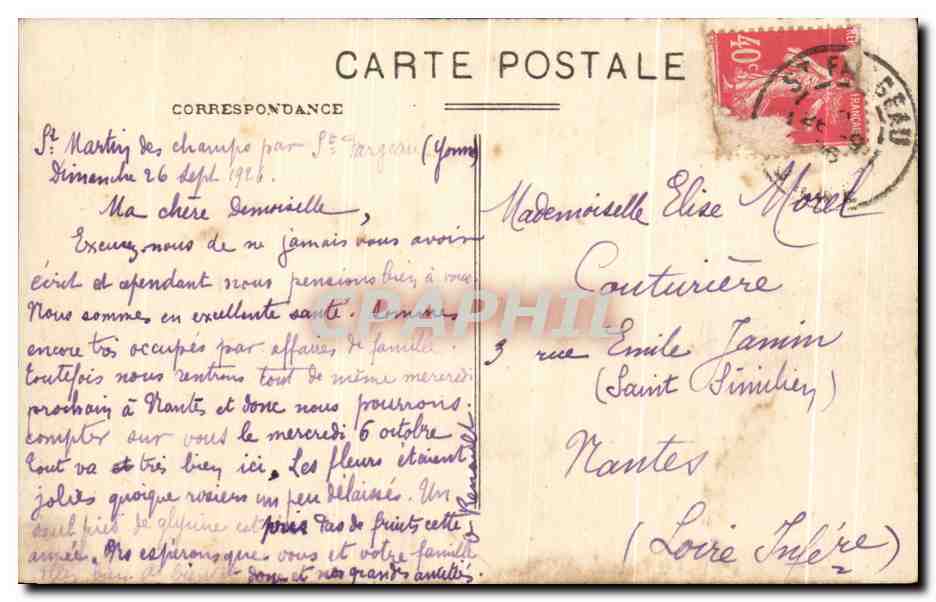 CARTE POSTALE
CORRESPONDANCE
St Martin des champs par St Fargeau (Yonne)
Dimanche 26 Sept 1926.
Ma chère demoiselle,
Excusez-nous de ne jamais vous avoir
écrit et cependant nous pensions bien à vous
Nous sommes en excellente santé. Sommes
encore très occupés par affaires de famille.
toutefois nous rentrons tout de même mercredi
prochain à Nantes et donc nous pourrons
compter sur vous le mercredi 6 octobre
Tout va très bien ici. Les fleurs étaient
jolies quoique rosiers un peu délaissés. Un
seul pied de glycine est pris Pas de fruits cette
année. Ns espérons que vous et votre famille
donc et nos grandes amitiés.
Renault
Mademoiselle Elise Morel
Couturière
3 rue Emile Jamin
(Saint Similien)
Nantes
(Loire Infére)
40c
FRANCAISE
ST FARGEAU
CPAPHIL